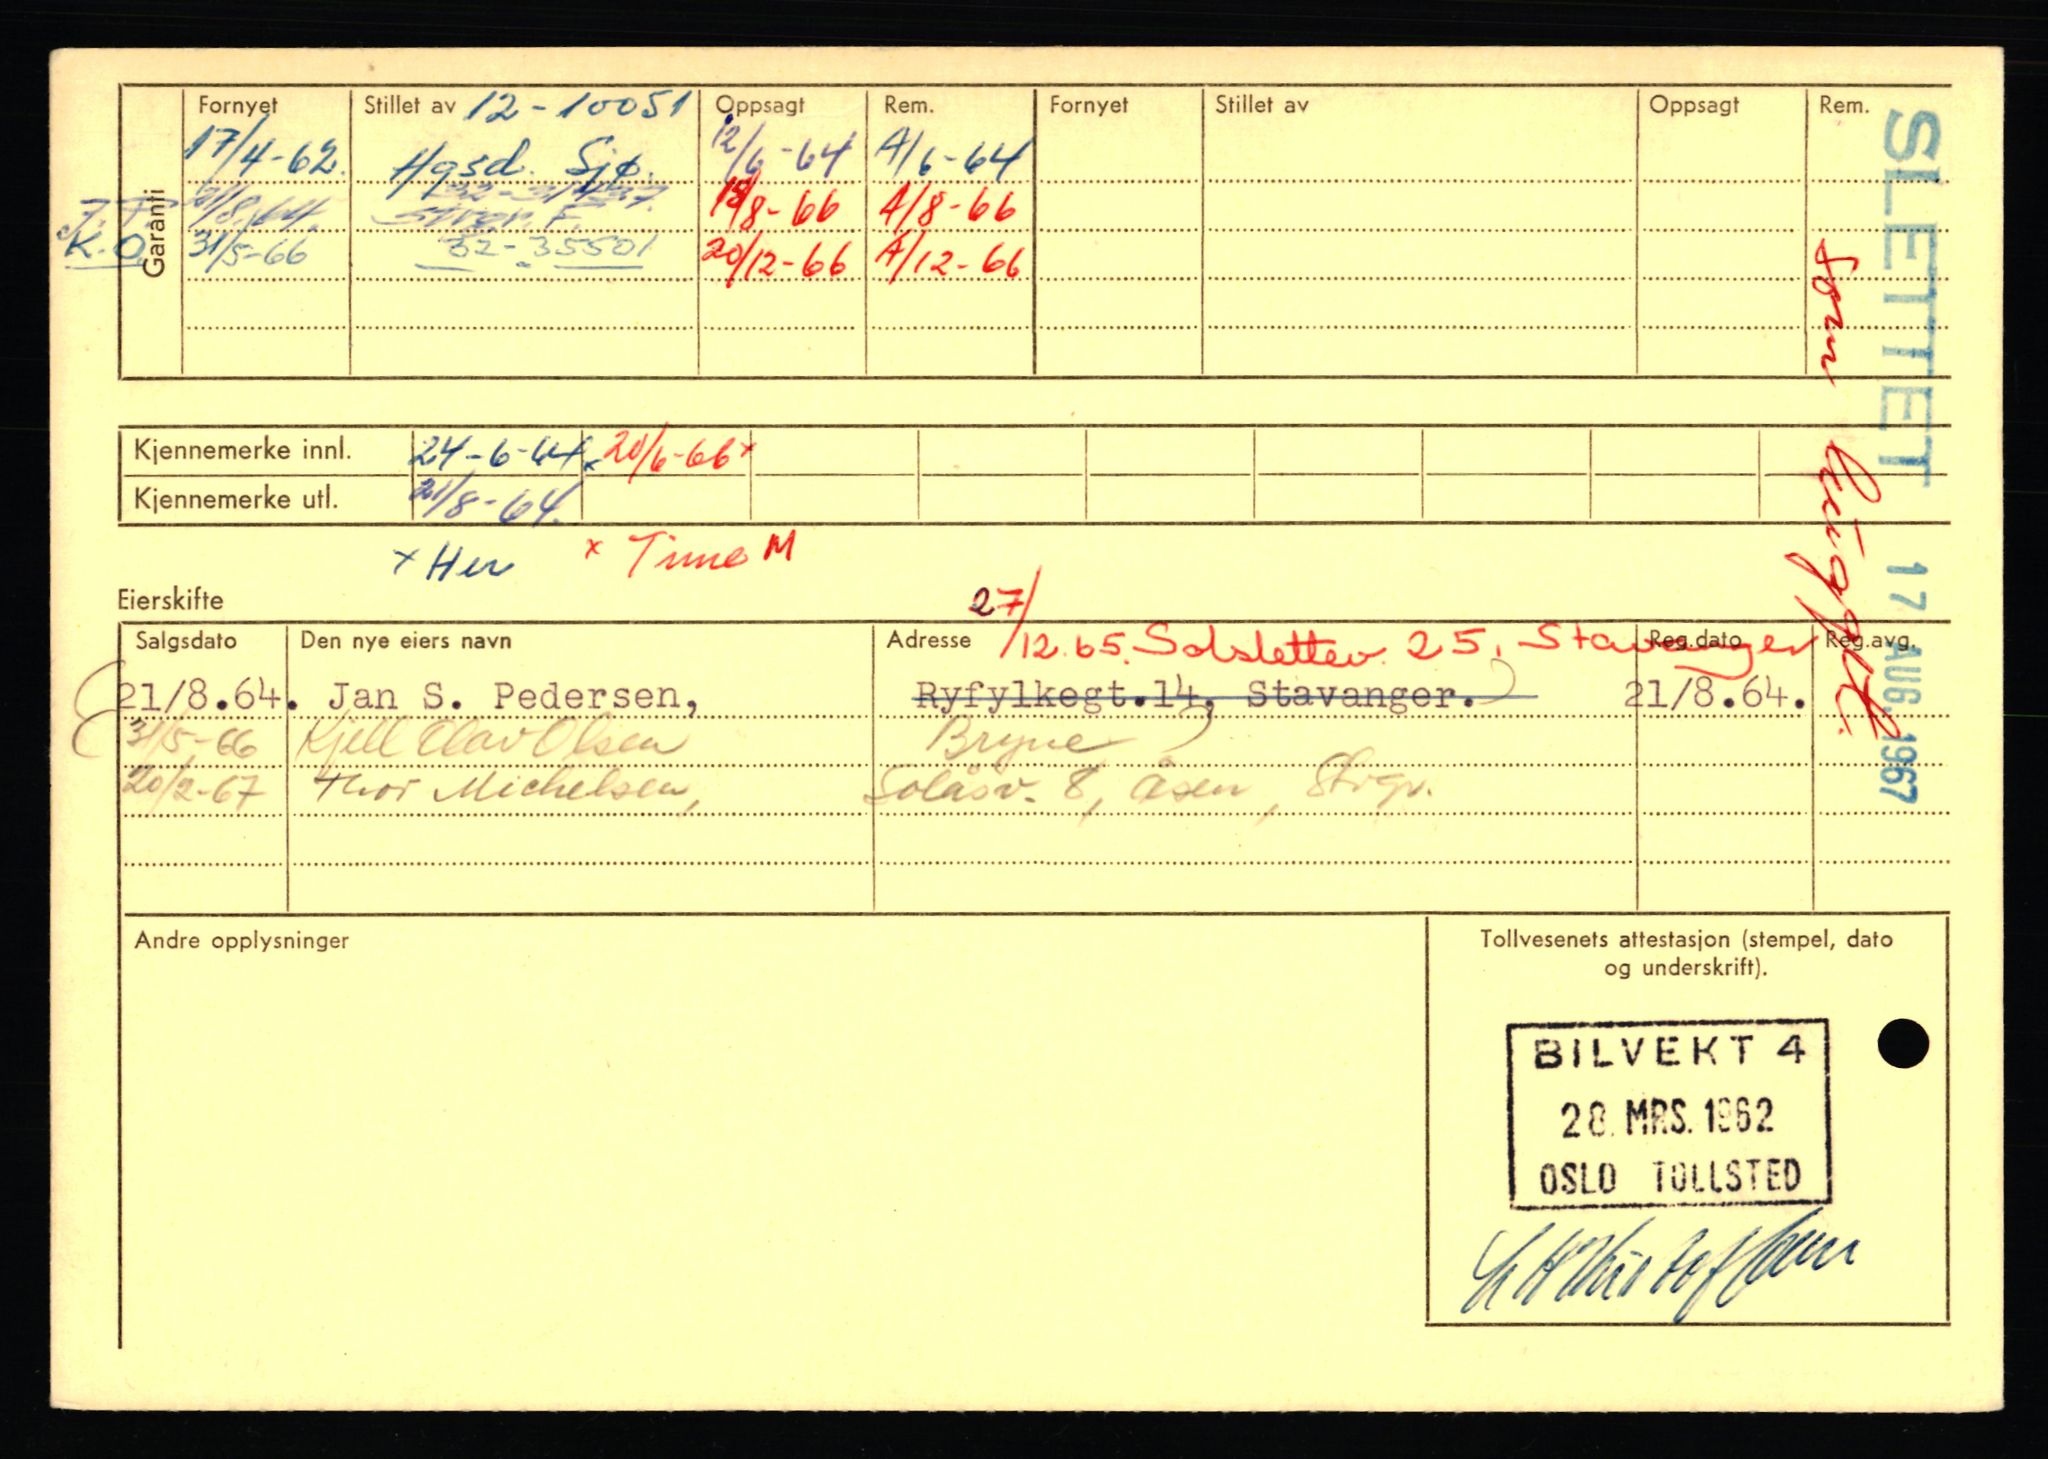 Fornyet Stillet av 12-10051 Oppsagt Rem. Fornyet Stillet av Oppsagt Rem.
17/4-62. Hgsd. Sjø. 12/6-64 A/6-64
21/8.64. Stvgr. F. 18/8-66 A/8-66
K.O. 31/5-66 32-35501 20/12-66 A/12-66
Garanti
Kjennemerke innl. 24-6-64x 20/6-66x
Kjennemerke utl. 21/8-64.
x Her x Time M
Eierskifte
27/12.65. Solslettev. 25, Stavanger
Salgsdato Den nye eiers navn Adresse Reg.dato Reg.avg.
21/8.64. Jan S. Pedersen, Ryfylkegt.14, Stavanger. 21/8.64.
31/5-66 Kjell Olav Olsen Bryne
20/2-67 Thor Michelsen, Solåsv. 8, Åsen, Stvgr.
Andre opplysninger
Tollvesenets attestasjon (stempel, dato
og underskrift).
BILVEKT 4
28. MRS. 1962
OSLO TOLLSTED
SLETTET 17 AUG. 1967
Som hugget.